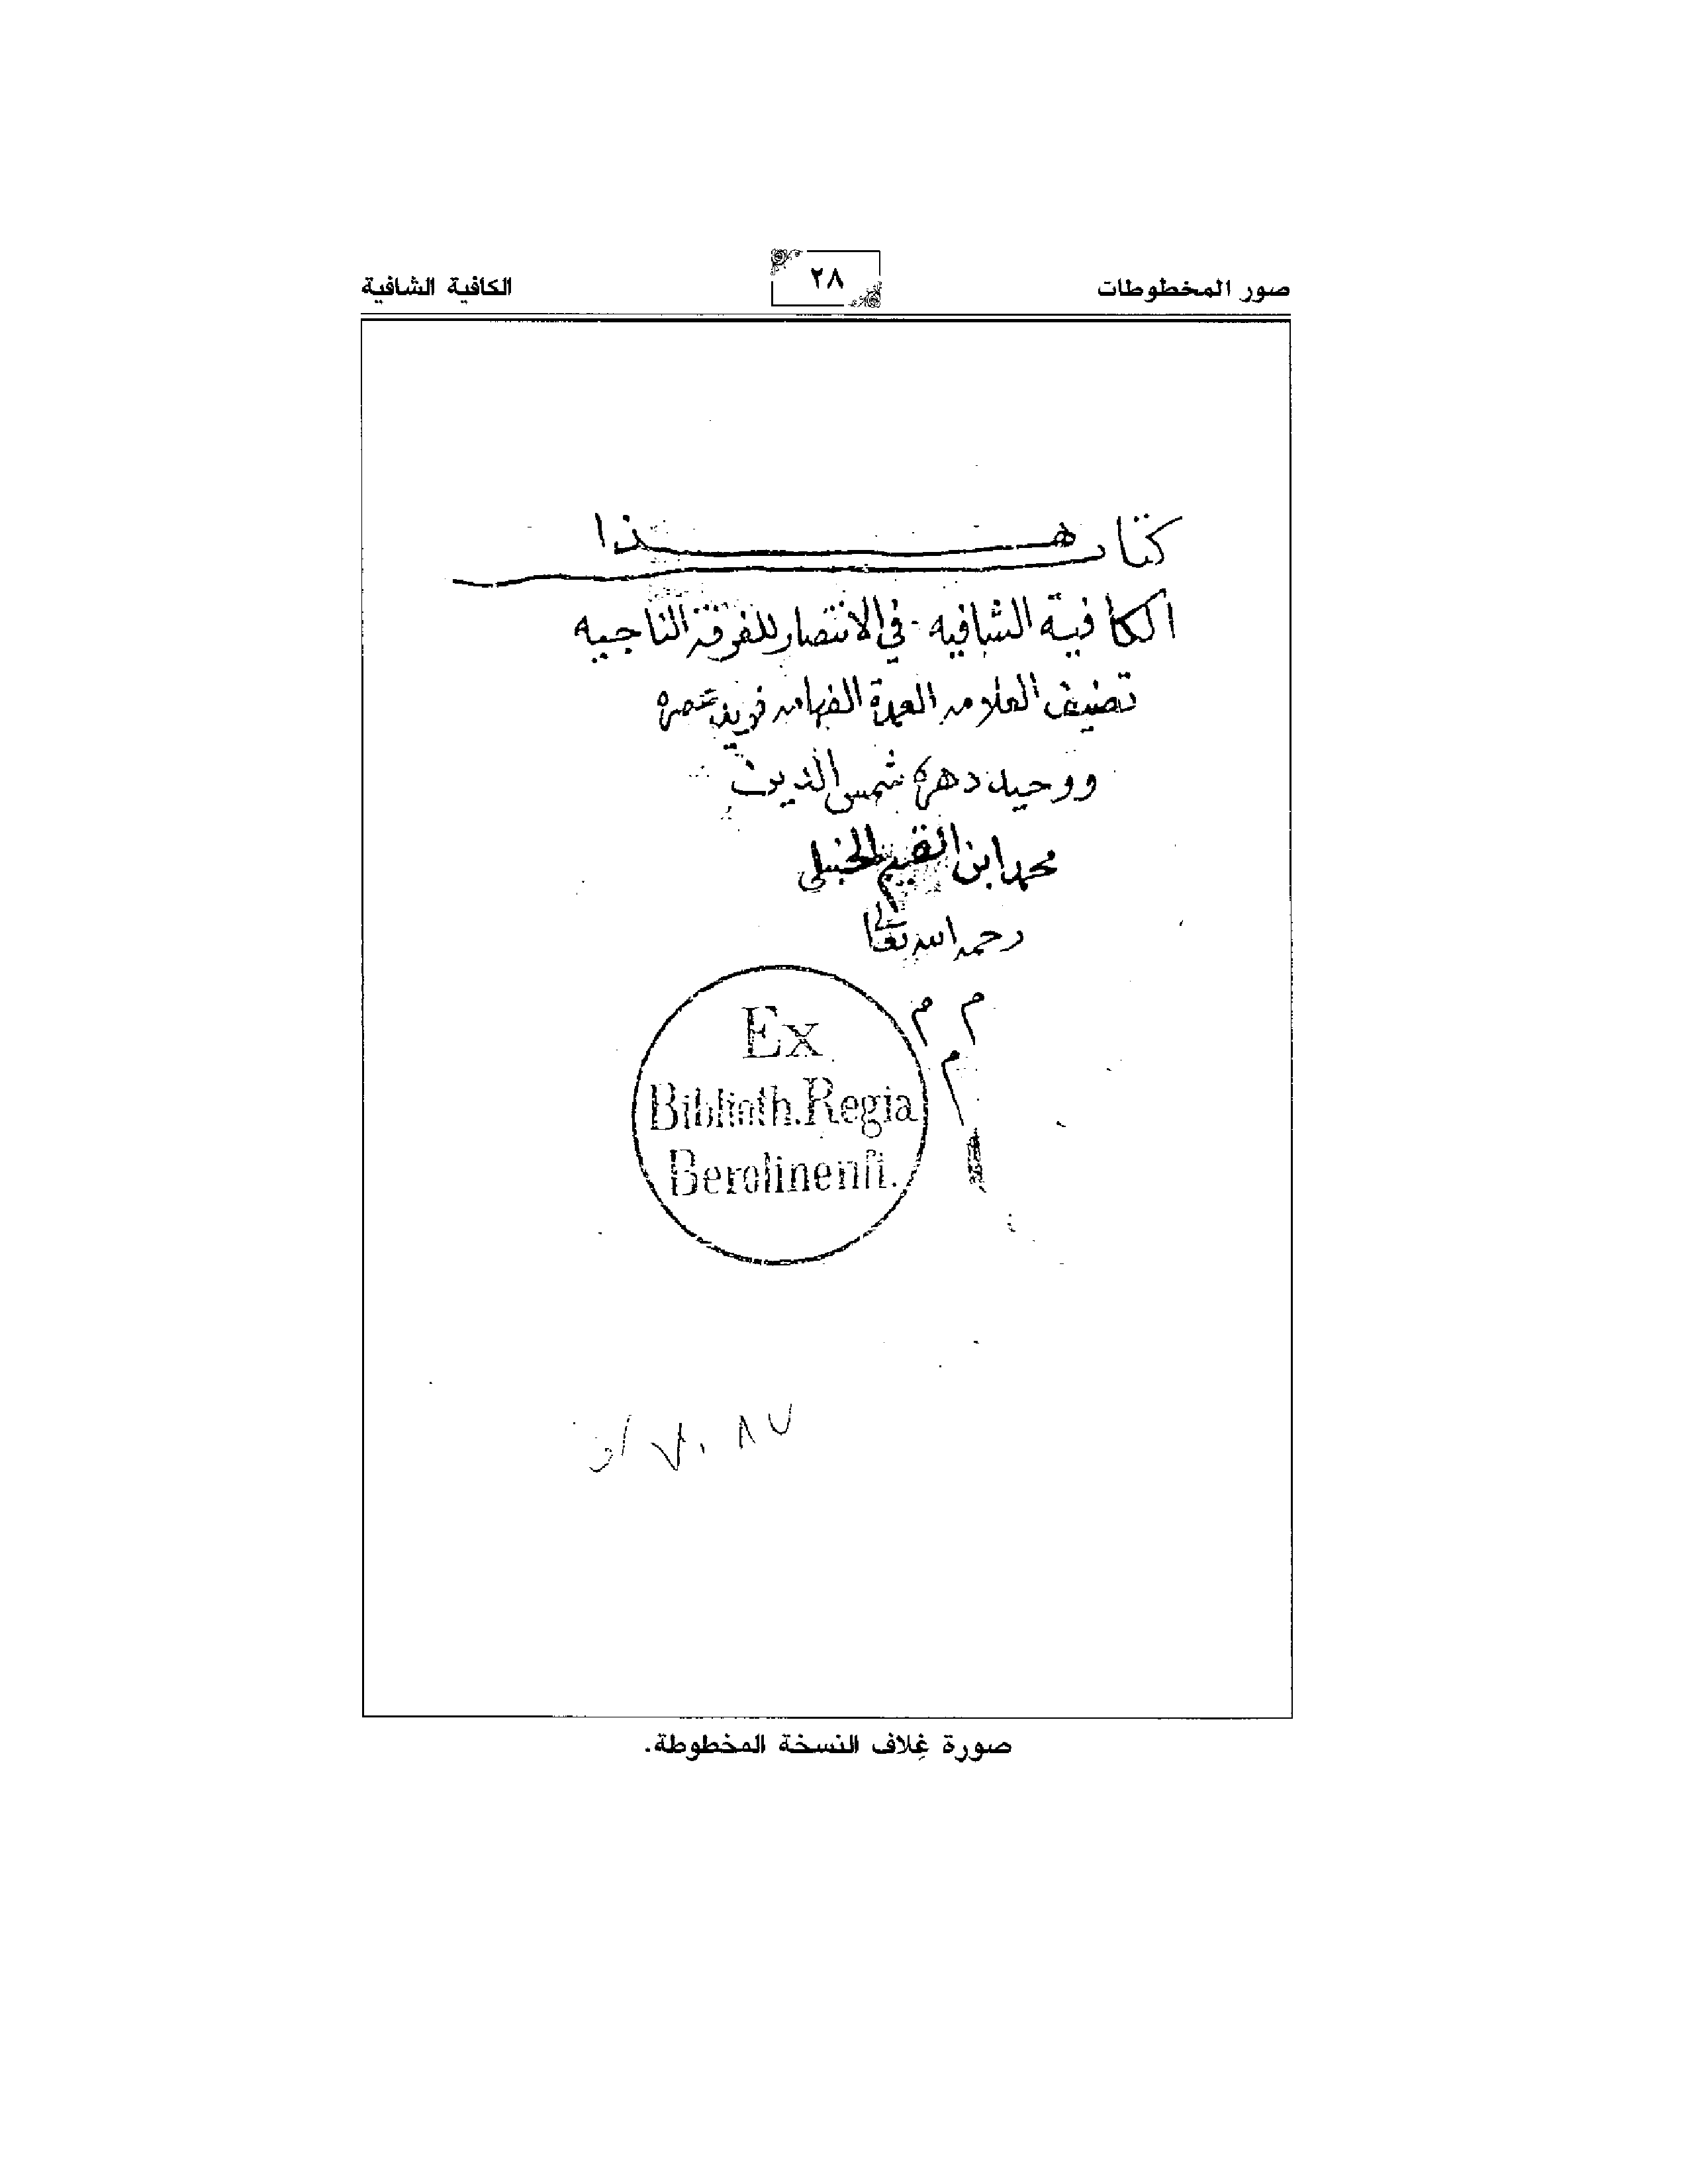 صور المخطوطات
٢٨
الكافية الشافية
هذا كتاب
الكافية الشافيه في الانتصار للفرقة الناجيه
تصنيف العلامه العمدة الفهامه فريد عصره
ووحيد دهره شمس الدين
محمد ابن القيم الحنبلي
رحمه الله تعالى
م م
م
Ex
Biblioth. Regia
Berolinensi.
صورة غِلاف النسخة المخطوطة.